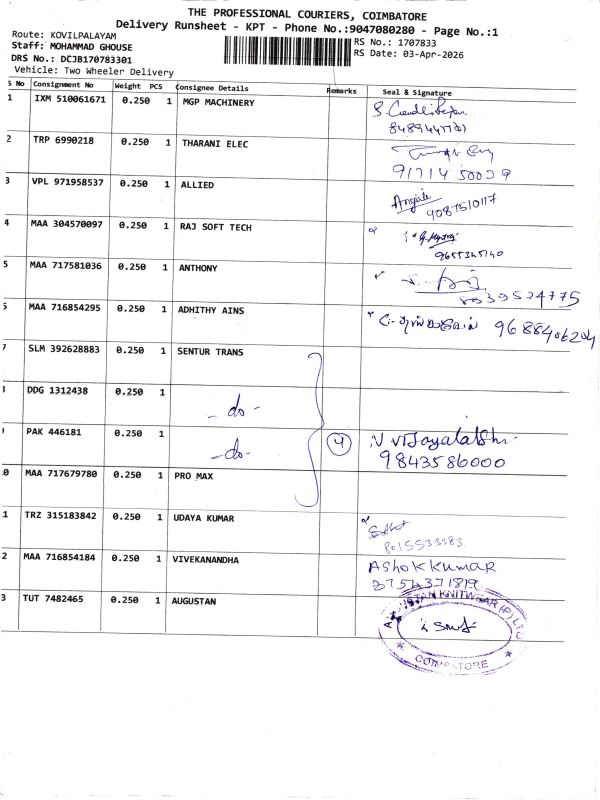 THE PROFESSIONAL COURIERS, COIMBATORE
Delivery Runsheet - KPT - Phone No.:9047080280 - Page No.:1
Route: KOVILPALAYAM
Staff: MOHAMMAD GHOUSE
DRS No.: DCJB170783301
Vehicle: Two Wheeler Delivery
RS No.: 1707833
RS Date: 03-Apr-2026
S No Consignment No Weight PCS Consignee Details Remarks Seal & Signature
1 IXM 510061671 0.250 1 MGP MACHINERY
2 TRP 6990218 0.250 1 THARANI ELEC
3 VPL 971958537 0.250 1 ALLIED Anjali 9087510117
4 MAA 304570097 0.250 1 RAJ SOFT TECH 9655345140
5 MAA 717581036 0.250 1 ANTHONY 8039524775
6 MAA 716854295 0.250 1 ADHITHY AINS
7 SLM 392628883 0.250 1 SENTUR TRANS
8 DDG 1312438 0.250 1 -do-
9 PAK 446181 0.250 1 -do- 4 9843586000
0 MAA 717679780 0.250 1 PRO MAX
1 TRZ 315183842 0.250 1 UDAYA KUMAR 8015533383
2 MAA 716854184 0.250 1 VIVEKANANDHA ASHOKKUMAR
3 TUT 7482465 0.250 1 AUGUSTAN
KNITWEAR (P) LTD
COIMBATORE